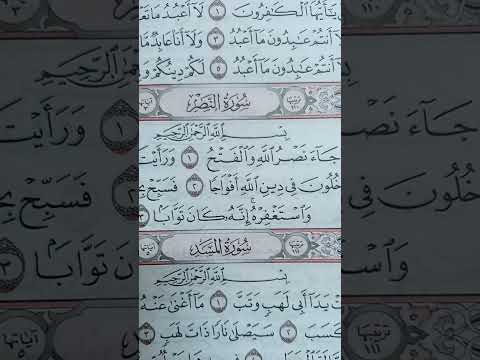 يَٰٓأَيُّهَا ٱلۡكَٰفِرُونَ ١ لَآ أَعۡبُدُ مَا
أَنتُمۡ عَٰبِدُونَ مَآ أَعۡبُدُ ٣ وَلَآ أَنَا۠ عَابِدٞ مَّا
أَنتُمۡ عَٰبِدُونَ مَآ أَعۡبُدُ ٥ لَكُمۡ دِينُكُمۡ
سُورَةُ النَّصۡرِ
بِسۡمِ ٱللَّهِ ٱلرَّحۡمَٰنِ ٱلرَّحِيمِ
جَآءَ نَصۡرُ ٱللَّهِ وَٱلۡفَتۡحُ ١ وَرَأَيۡتَ
فِي دِينِ ٱللَّهِ أَفۡوَاجٗا ٢ فَسَبِّحۡ
وَٱسۡتَغۡفِرۡهُۚ إِنَّهُۥ كَانَ تَوَّابَۢا ٣
سُورَةُ المَسَدِ
بِسۡمِ ٱللَّهِ ٱلرَّحۡمَٰنِ ٱلرَّحِيمِ
يَدَآ أَبِي لَهَبٖ وَتَبَّ ١ مَآ أَغۡنَىٰ عَنۡهُ
كَسَبَ ٢ سَيَصۡلَىٰ نَارٗا ذَاتَ لَهَبٖ ٣